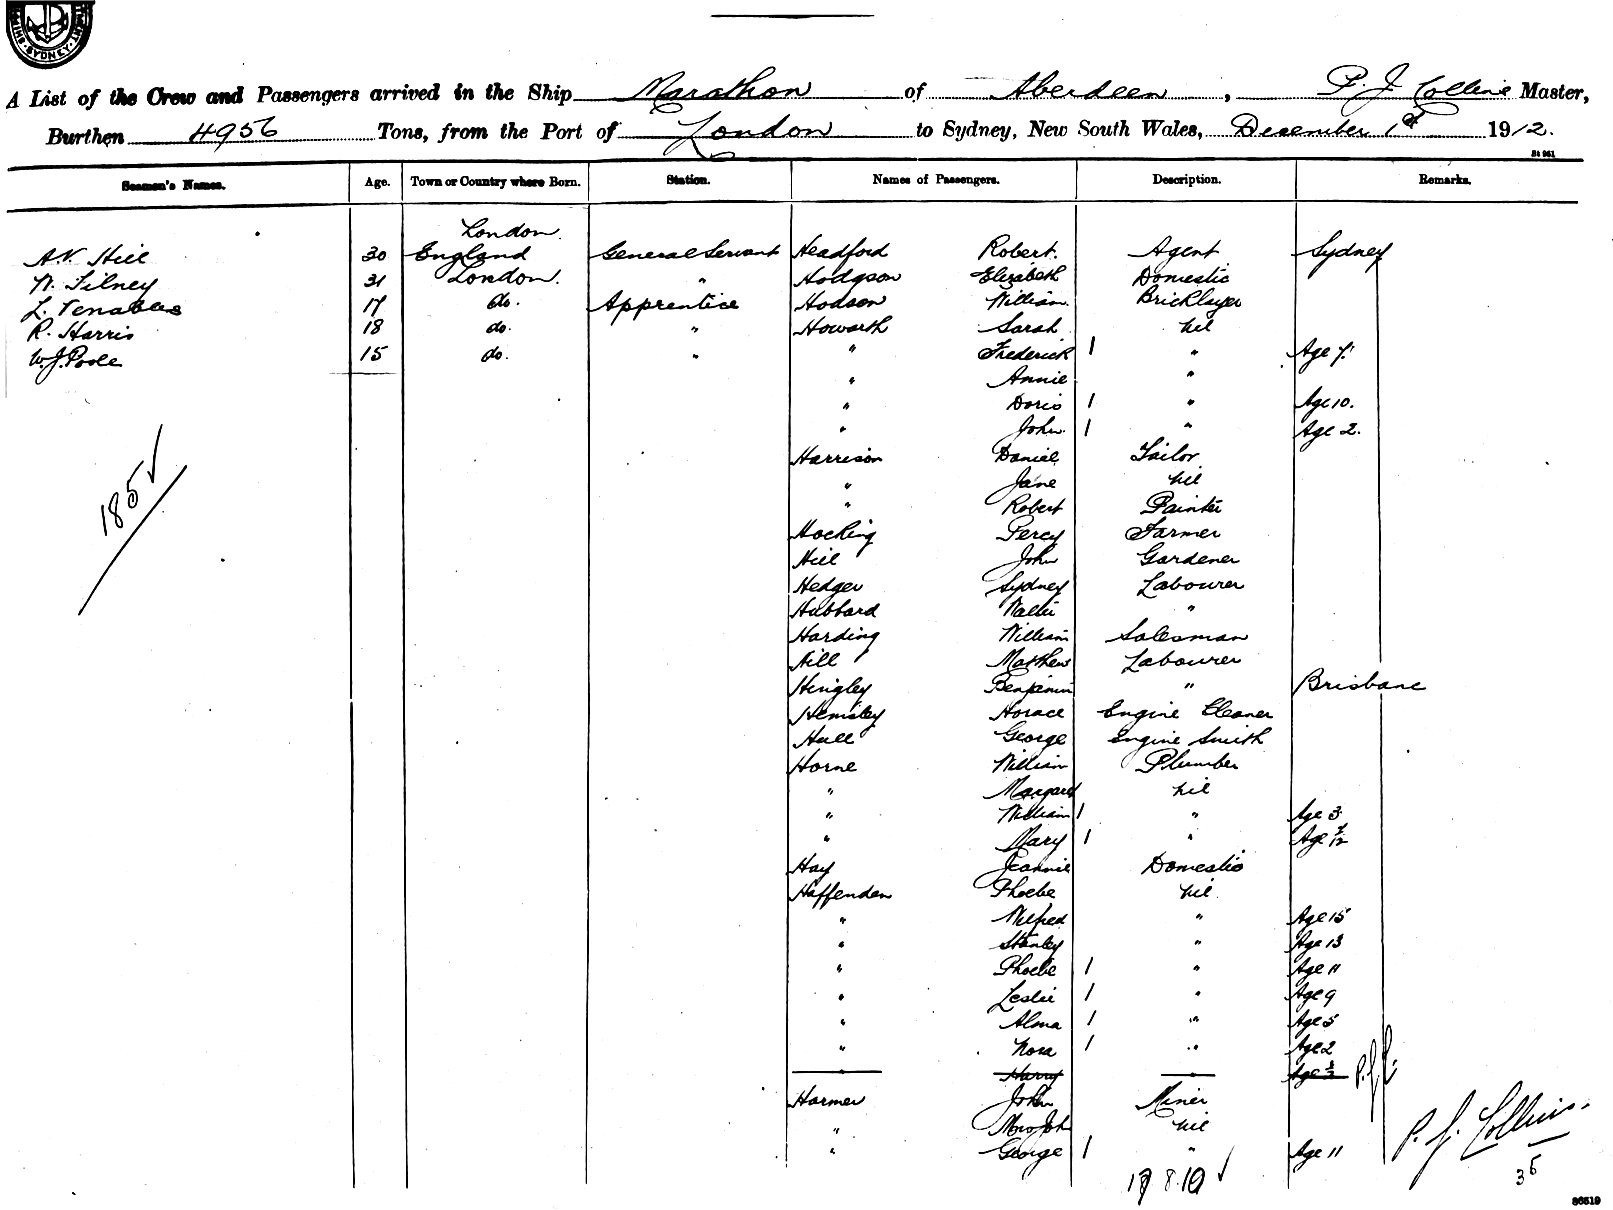 SYDNEY
A List of the Crew and Passengers arrived in the Ship Marathon of Aberdeen, P. J. Collins Master,
Burthen 4956 Tons, from the Port of London to Sydney, New South Wales, December 1st 1912.
St 961
Seamen's Names. Age. Town or Country where Born. Station. Names of Passengers. Description. Remarks.
London.
A.V. Hill 30 England General Servant Headford Robert. Agent Sydney
W. Tilney 31 London. " Hodgson Elizabeth Domestic
L. Venables 17 do. Apprentice Hodson William. Bricklayer
R. Harris 18 do. " Howarth Sarah nil
W.J. Poole 15 do. " " Frederick 1 " Age 7.
" Annie "
" Doris 1 " Age 10.
" John 1 " Age 2.
Harrison Daniel Tailor
" Jane nil
" Robert Painter
185 ✓
Hocking Percy Farmer
Hill John Gardener
Hedger Sydney Labourer
Hubbard "
Harding William Salesman
Hill Mathew Labourer
Hingley Benjamin " Brisbane
Hemsley Horace Engine Cleaner
Hull George Engine Smith
Horne William Plumber
" Margaret nil
" William 1 " Age 3
" Mary 1 " Age 7/12
Hay Jeannie Domestic
Haffenden Phoebe nil
" Wilfred " Age 15
" Stanley " Age 13
" Phoebe 1 " Age 11
" Leslie 1 " Age 9
" Alma 1 " Age 5
" Nora 1 " Age 2
" Harry Age P.J.C.
Harmer John Miner
" nil
" George 1 " Age 11
P. J. Collins.
35
86519